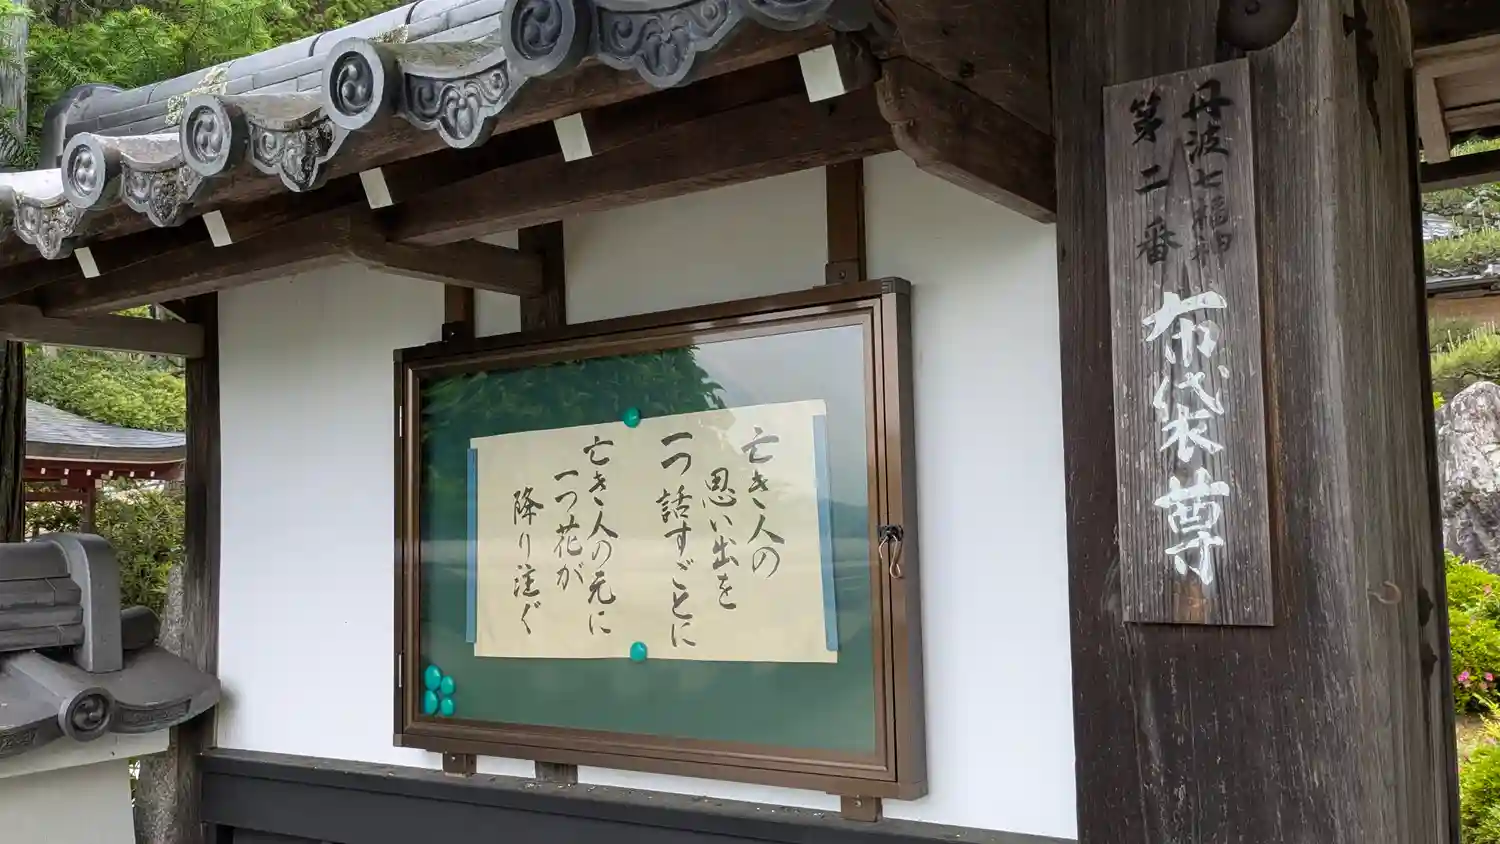 丹波七福神
第二番
布袋尊
亡き人の
思い出を
一つ話すごとに
亡き人の元に
一つ花が
降り注ぐ